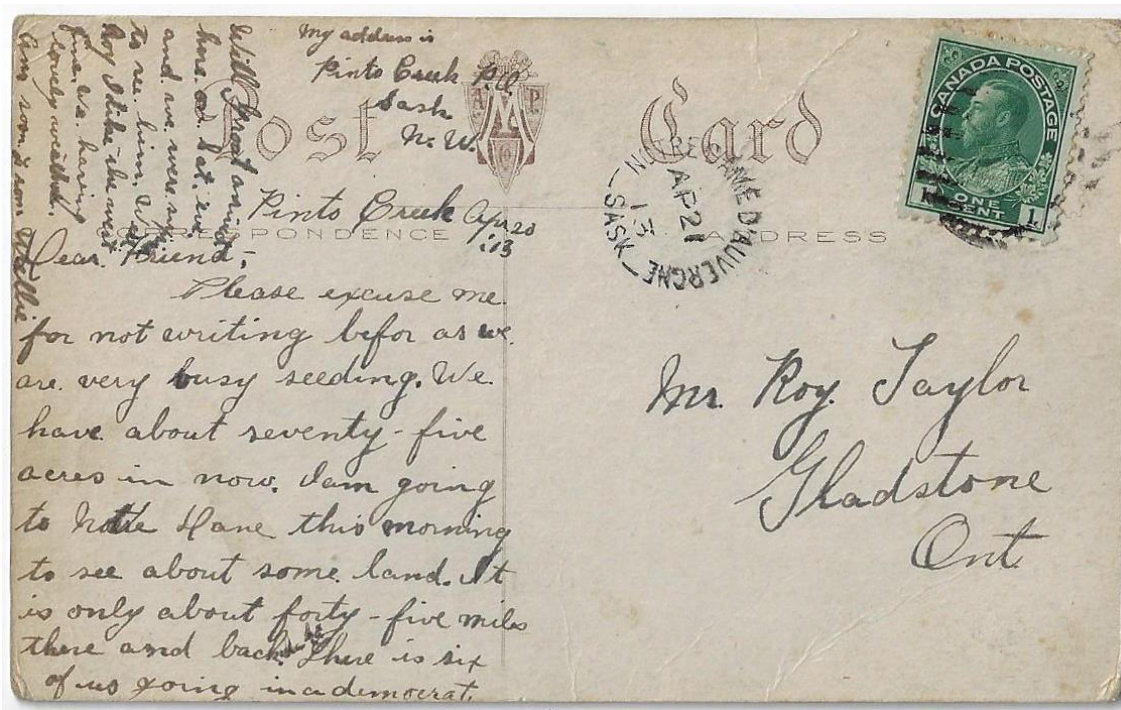 Post Card
A P
CORRESPONDENCE
ADDRESS
CANADA POSTAGE
1 ONE CENT 1
NOTRE DAME D'AUVERGNE
AP 21
13
SASK
My address is
Pinto Creek P.O.
Sask
N. W.
Pinto Creek Apr 20
/13
Dear Friend,-
Please excuse me.
for not writing befor as we
are very busy seeding. We
have about seventy-five
acres in now. I am going
to Notre Dane this morning
to see about some land. It
is only about forty-five miles
there and back. There is six
of us going in a democrat.
Will Grant arrived
here on Sat. eve
and we were
to see him.
Roy I like the west
fine. we having
lovely weather.
Ans soon & soon Wellie
Mr. Roy Taylor
Gladstone
Ont.